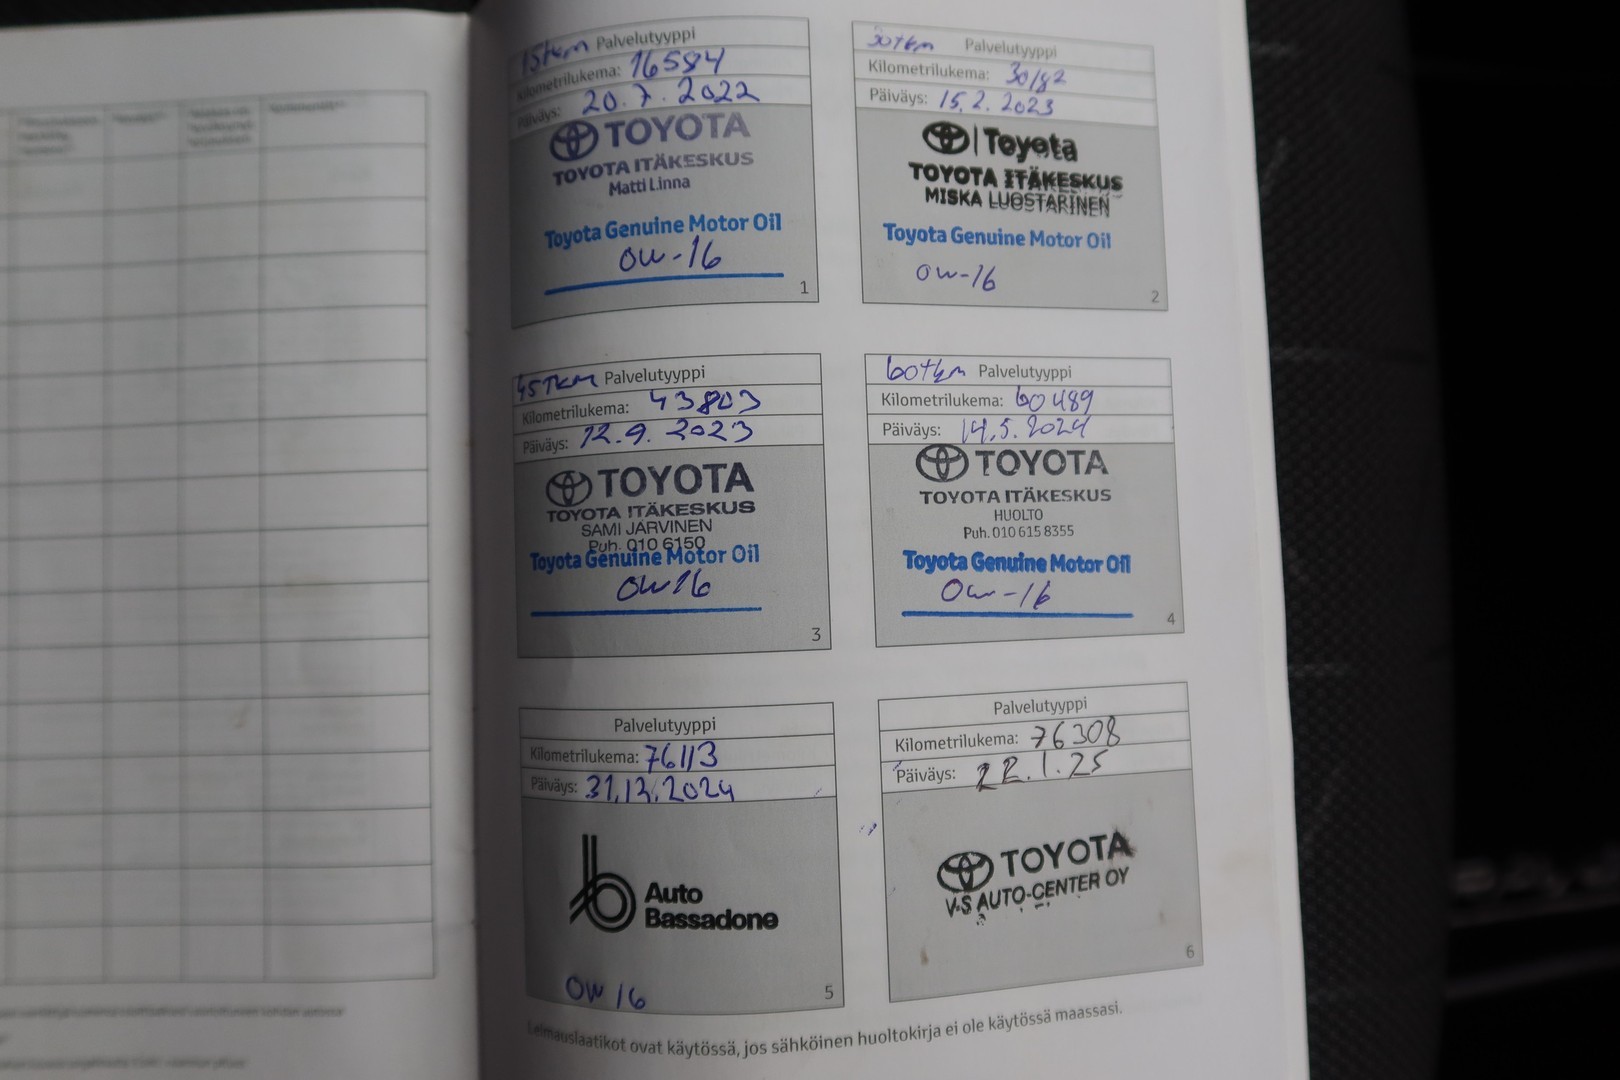 15tkm Palvelutyyppi
Kilometrilukema: 16584
Päiväys: 20.7.2022
TOYOTA
TOYOTA ITÄKESKUS
Matti Linna
Toyota Genuine Motor Oil
0W-16
1
30tkm Palvelutyyppi
Kilometrilukema: 30182
Päiväys: 15.2.2023
Toyota
TOYOTA ITÄKESKUS
MISKA LUOSTARINEN
Toyota Genuine Motor Oil
0W-16
2
45TKM Palvelutyyppi
Kilometrilukema: 43803
Päiväys: 12.9.2023
TOYOTA
TOYOTA ITÄKESKUS
SAMI JÄRVINEN
Puh. 010 6150
Toyota Genuine Motor Oil
0W16
3
60tkm Palvelutyyppi
Kilometrilukema: 60489
Päiväys: 14.5.2024
TOYOTA
TOYOTA ITÄKESKUS
HUOLTO
Puh. 010 615 8355
Toyota Genuine Motor Oil
0W-16
4
Palvelutyyppi
Kilometrilukema: 76113
Päiväys: 31.12.2024
Auto
Bassadone
0W16
5
Palvelutyyppi
Kilometrilukema: 76308
Päiväys: 22.1.25
TOYOTA
V-S AUTO-CENTER OY
6
Leimauslaatikot ovat käytössä, jos sähköinen huoltokirja ei ole käytössä maassasi.